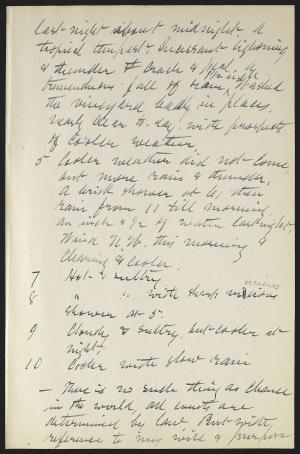 last night about midnight a
tropical tempest. Incessant lightning
& thunder & a
tremendous fall of rain, which washed
the vineyard badly in places.
nearly clear to-day, with prospects
of cooler weather.
5 Cooler weather did not come,
but more rain & thunder.
A brisk shower at 6, then
rain from 11 till morning,
an inch & 1/2 of water last night.
Wind N.W. this morning &
clearing & cooler.
7 Hot & sultry
8 " " with sharp vicious
vicious
shower at 5.
9 Cloudy & sultry but cooler at
night.
10 Cooler with slow rain
— There is no such thing as chance
in the world, all events are
determined by law. But with
reference to my will & purpose